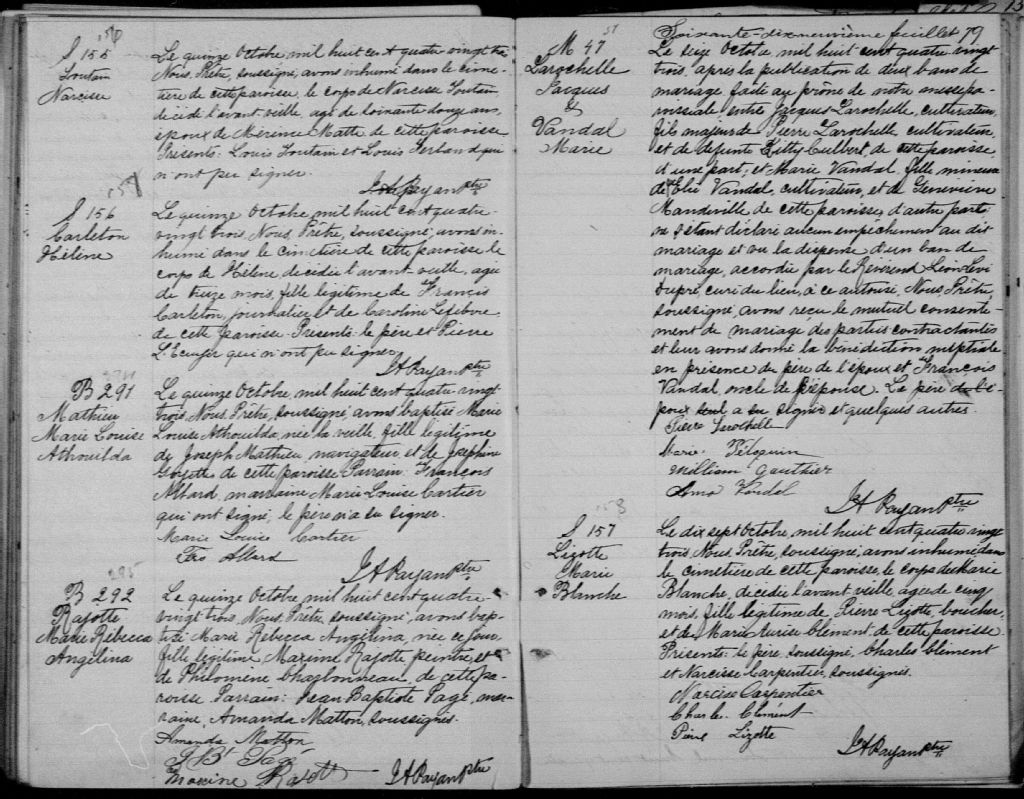 156
S 155
Toutain
Narcisse
Le quinze Octobre mil huit cent quatre vingt trois
Nous, Prêtre, soussigné, avons inhumé dans le cime-
tière de cette paroisse, le corps de Narcisse Toutain,
décédé l'avant veille, agé de soixante douze ans,
époux de Mérence Matte de cette paroisse
Présents: Louis Toutain et Louis Ferland qui
n'ont pu signer.
JA Payan ptre
157
S 156
Carleton
Hélène
Le quinze Octobre mil huit cent quatre-
vingt trois, Nous, Prêtre, soussigné, avons in-
humé dans le cimetière de cette paroisse le
corps de Hélène décédée l'avant veille, agée
de treize mois, fille légitime de Francis
Carleton, journalier et de Caroline Lefebvre
de cette paroisse. Présents: le père et Pierre
L'Ecuyer qui n'ont pu signer
JA Payan ptre
B 291
Mathieu
Marie Louise
Athouilda
Le quinze Octobre, mil huit cent quatre vingt
trois, Nous, Prêtre, soussigné, avons baptisé Marie
Louise Athouilda, née la veille, fille légitime
de Joseph Mathieu, navigateur, et de Joséphine
Goyette de cette paroisse. Parrain: François
Allard, marraine Marie Louise Cartier
qui ont signé, le père n'a su signer.
Marie Louise Cartier
Frs Allard
JA Payan ptre
295
B 292
Rajotte
Marie Rébecca
Angélina
Le quinze Octobre mil huit cent quatre-
vingt trois, Nous, Prêtre, soussigné, avons bap-
tisé Marie Rébecca Angélina, née ce jour,
fille légitime, Maxime Rajotte peintre, et
de Philomène Charbonneau, de cette pa-
roisse. Parrain: Jean Baptiste Pagé, mar-
raine, Amanda Matton, soussignés.
Amanda Matton
J Bt Pagé
Maxime Rajotte JA Payan ptre
Soixante-dix-neuvième feuillet 79
M 47
Larochelle
Jacques
&
Vandal
Marie
Le seize Octobre, mil huit cent quatre vingt
trois, après la publication de deux bans de
mariage, faite au prone de notre messe pa-
roissiale entre Jacques Larochelle, cultivateur,
fils majeur de Pierre Larochelle, cultivateur
et de défunte Kitty Culbert, de cette paroisse,
d'une part; et Marie Vandal, fille mineure
de Elie Vandal, cultivateur, et de Geneviève
Mandeville, de cette paroisse, d'autre part;
ne s'étant déclaré aucun empêchement au dit
mariage et vu la dispense d'un ban de
mariage, accordée par le Révérend Léon Lévi
Dupré, curé du lieu, à ce autorisé, Nous, Prêtre,
soussigné, avons reçu le mutuel consente-
ment de mariage des parties contractantes
et leur avons donné la bénédiction nuptiale
en présence du père de l'époux et de François
Vandal, oncle de l'épouse. Le père de l'é-
poux seul a su signer et quelques autres.
Pierre Larochelle
Marie Péloquin
William Gauthier
Vandal
JA Payan ptre
158
S 157
Lizotte
Marie
Blanche
Le dix sept Octobre, mil huit cent quatre vingt
trois, Nous, Prêtre, soussigné, avons inhumé dans
le cimetière de cette paroisse, le corps de Marie
Blanche, décédée l'avant veille, agée de cinq
mois, fille légitime de Pierre Lizotte, boucher,
et de Marie Aurise Clément, de cette paroisse
Présents: le père, soussigné, Charles Clément
et Narcisse Carpentier, soussignés.
Narcisse Carpentier
Charles Clément
Pierre Lizotte
JA Payan ptre